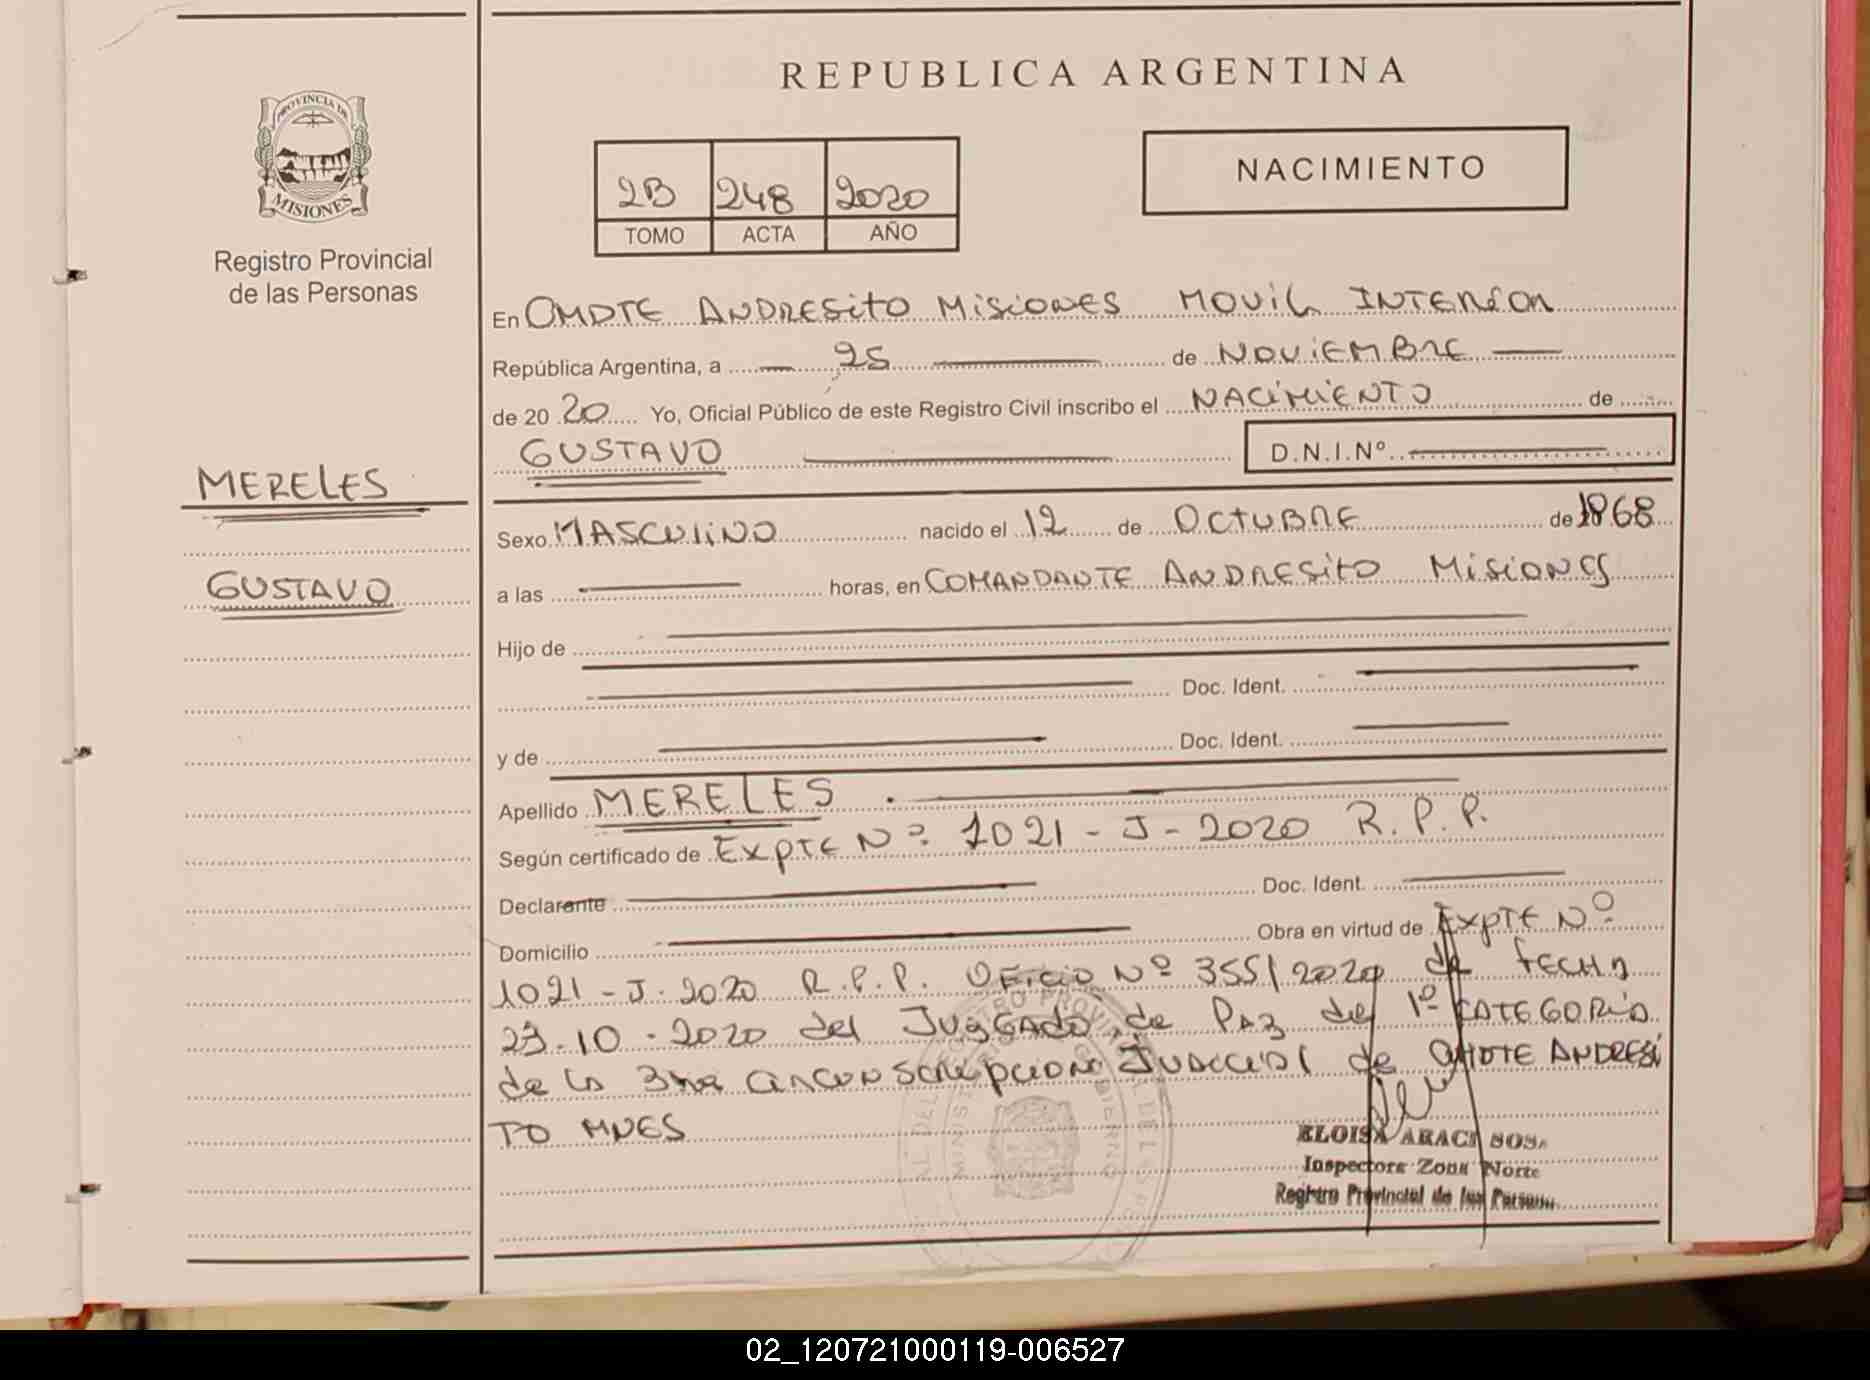 REPUBLICA ARGENTINA
PROVINCIA DE
MISIONES
Registro Provincial
de las Personas
2B 248 2020
TOMO ACTA AÑO
NACIMIENTO
En CMDTE ANDRESITO MISIONES MOVIL INTERIOR
República Argentina, a 25 de NOVIEMBRE
de 20 20 Yo, Oficial Público de este Registro Civil inscribo el NACIMIENTO de
GUSTAVO D.N.I.Nº
MERELES
GUSTAVO
Sexo MASCULINO nacido el 12 de OCTUBRE de 1968
a las horas, en COMANDANTE ANDRESITO MISIONES
Hijo de
Doc. Ident.
y de Doc. Ident.
Apellido MERELES
Según certificado de EXPTE Nº 1021-J-2020 R.P.P.
Declarante Doc. Ident.
Domicilio Obra en virtud de EXPTE Nº
1021-J-2020 R.P.P. OFICIO Nº 355/2020 de FECHA
-10-2020 del JUZGADO de PAZ de 1º CATEGORIA
de la 3ra CIRCUNSCRIPCION JUDICIAL de CMDTE ANDRESI
TO MNES
ELOISA ARACI SOSA
Inspectora Zona Norte
Registro Provincial de las Personas
02_120721000119-006527